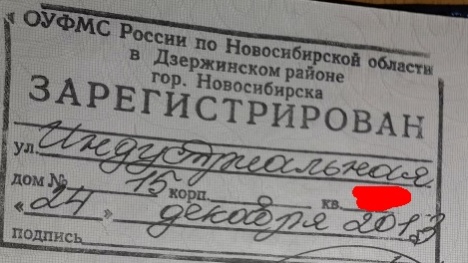 ОУФМС России по Новосибирской области
в Дзержинском районе
гор. Новосибирска
ЗАРЕГИСТРИРОВАН
ул. Индустриальная
дом № 15 корп. кв.
«24» декабря 2013
подпись